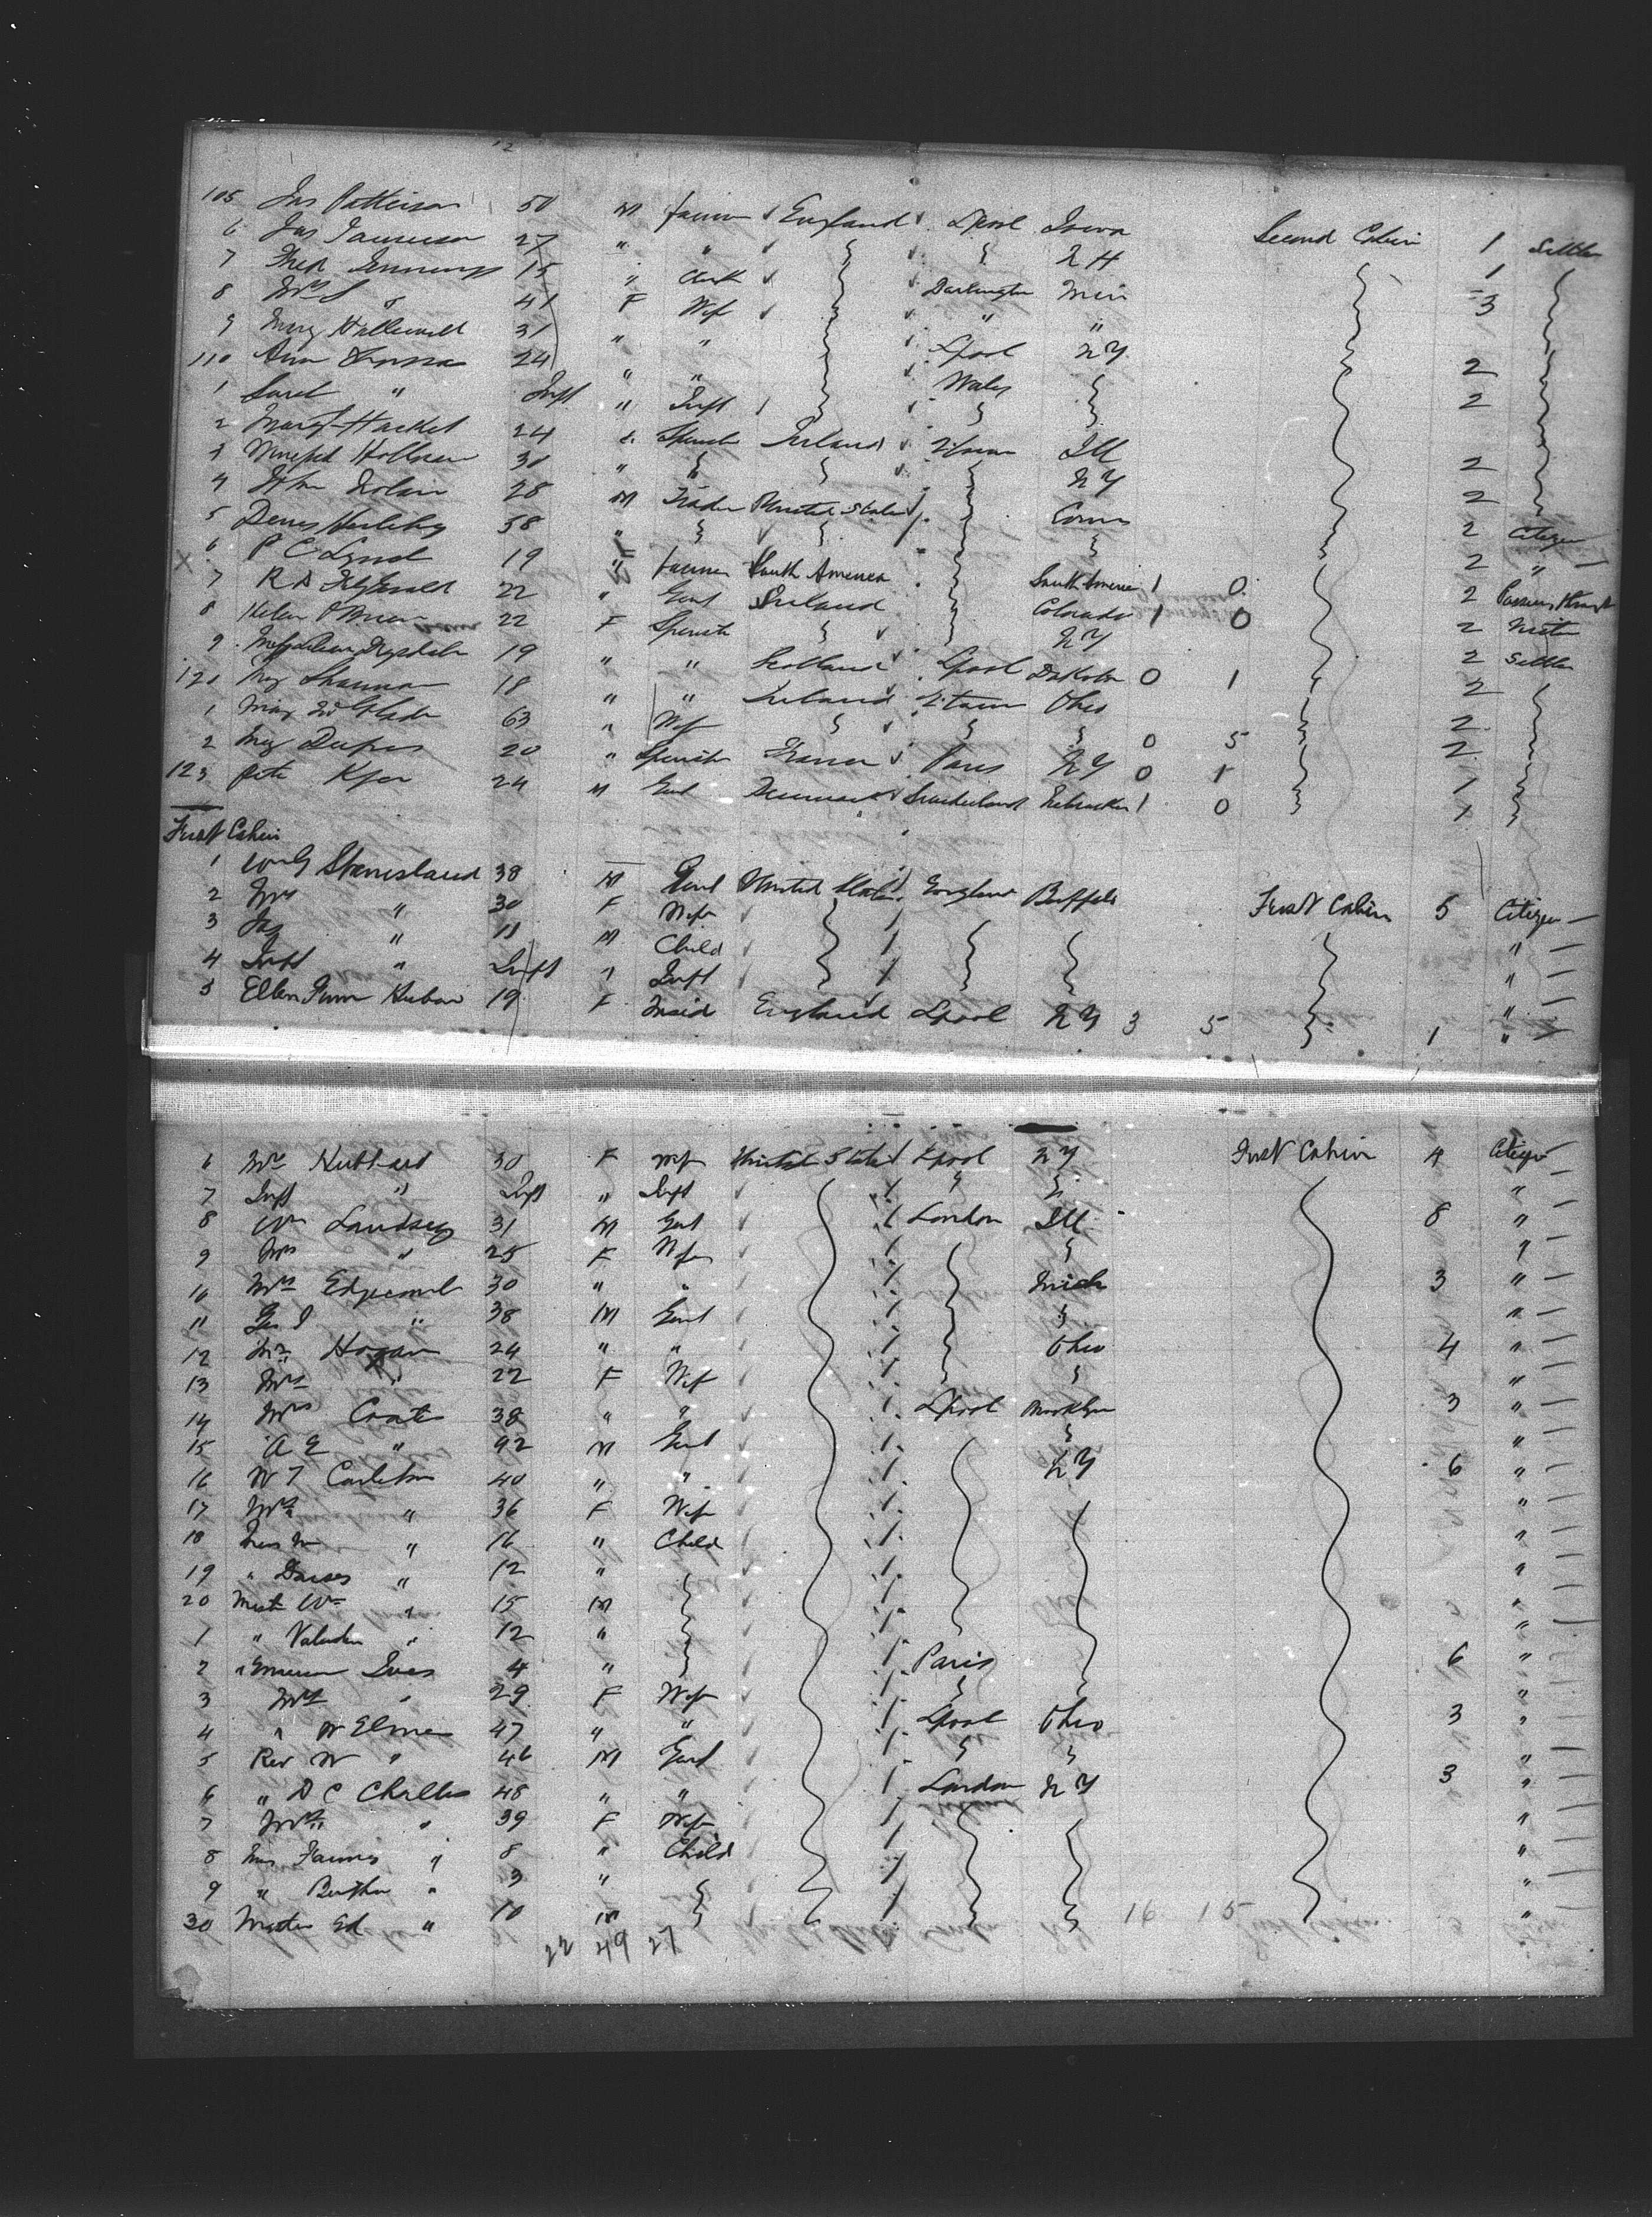 105 Jas Patterson 50 M Farmer England Lpool Iowa Second Cabin 1 Settler
6 Jas 27 " " N H 1
7 Fred Jennings 15 " Clerk Darlington Min 3
8 Mrs S " 41 F Wife " "
9 Mary 31 " " Lpool N Y 2
110 Ann 24 " " Wales 2
1 Sarah " Inft " Inft
2 Margt Hacket 24 " Spinster Ireland Ill 2
3 30 " N Y 2
4 Jthn Nolan 28 M Trader United States Conn 2 Citizen
5 Denis Herlihy 58 " 2 "
6 P C Lynd 19 " Farmer South America South America 1 0 2
7 R D FitzGerald 22 " Gent Ireland Colorado 1 0 2
8 Helen O'Brien 22 F Spinster N Y 2 Settler
9 19 " " Scotland Lpool Dakota 0 1 2
120 Mary Shannon 18 " " Ireland Ohio 2
1 63 " Wife 0 5 2
2 20 " Spinster France Paris N Y 0 1 1
123 24 M Gent Denmark Nebraska 1 0 1
First Cabin
1 Wm G Stanisland 38 M Gent United States England Buffalo First Cabin 5 Citizen
2 Mrs " 30 F Wife "
3 Jas " 11 M Child "
4 Inft " Inft " Inft "
5 Ellen 19 F Maid England Lpool N Y 3 5 1 "
6 Mrs Hubbard 30 F Wife United States Lpool N Y First Cabin 4 Citizen
7 Inft " Inft " Inft "
8 Wm Landsey 31 M Gent London Ill 8 "
9 Mrs " 25 F Wife "
10 Mrs Edgecomb 30 " " Mich 3 "
11 Geo I " 38 M Gent "
12 Mr Hogan 24 " " Ohio 4 "
13 Mrs " 22 F Wife "
14 Mrs Coats 38 " " Lpool Brooklyn 3 "
15 A E " 42 M Gent "
16 W T Carleton 40 " " N Y 6 "
17 Mrs " 36 F Wife "
18 Miss M " 16 " Child "
19 " " 12 " "
20 Mastr Wm " 15 M "
1 " " 12 " "
2 " Ives 4 " Paris 6 "
3 Mrs " 29 F Wife "
4 " W Elmer 47 " " Lpool Ohio 3 "
5 Rev W " 46 M Gent "
6 " D C 48 " " London N Y 3 "
7 Mrs " 39 F Wife "
8 Miss " 8 " Child "
9 " Bertha " 3 " "
30 Master Ed " 10 M 16 15 "
22 49 27